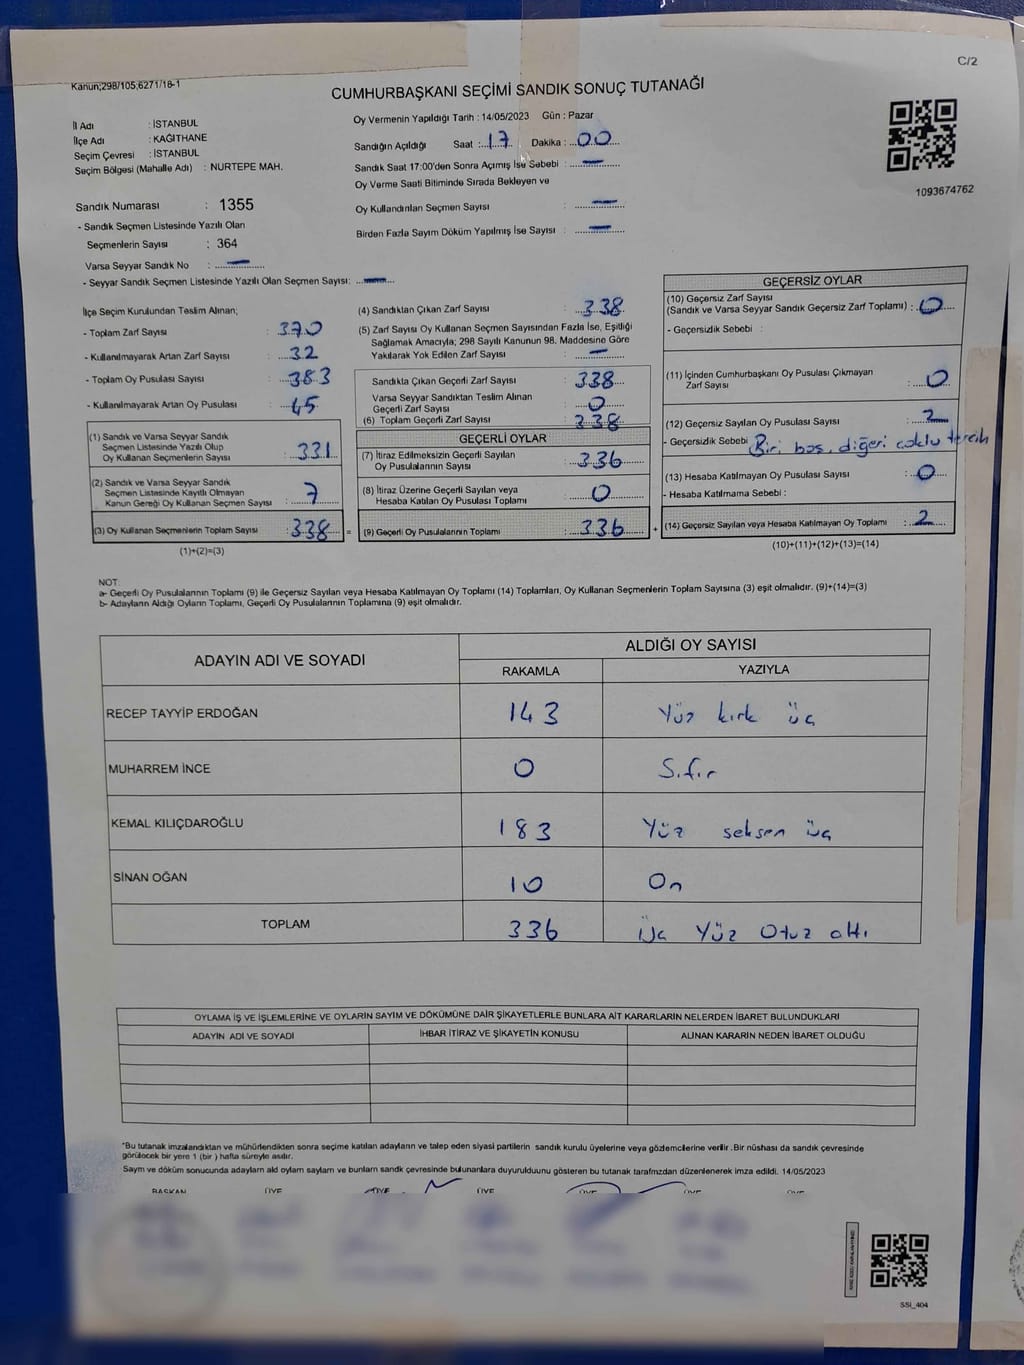 C/2
Kanun;298/105,6271/18-1
CUMHURBAŞKANI SEÇİMİ SANDIK SONUÇ TUTANAĞI
İl Adı : İSTANBUL
İlçe Adı : KAĞITHANE
Seçim Çevresi : İSTANBUL
Seçim Bölgesi (Mahalle Adı) : NURTEPE MAH.
Oy Vermenin Yapıldığı Tarih : 14/05/2023 Gün : Pazar
Sandığın Açıldığı Saat :..17 Dakika :..00..
Sandık Saat 17:00'den Sonra Açımış İse Sebebi : —
Oy Verme Saati Bitiminde Sırada Bekleyen ve
Oy Kullandırılan Seçmen Sayısı : —
Birden Fazla Sayım Döküm Yapılmış İse Sayısı : —
1093674762
Sandık Numarası : 1355
- Sandık Seçmen Listesinde Yazılı Olan
Seçmenlerin Sayısı : 364
Varsa Seyyar Sandık No : —
- Seyyar Sandık Seçmen Listesinde Yazılı Olan Seçmen Sayısı: —
İlçe Seçim Kurulundan Teslim Alınan;
- Toplam Zarf Sayısı : 370
- Kullanılmayarak Artan Zarf Sayısı : 32
- Toplam Oy Pusulası Sayısı : 383
- Kullanılmayarak Artan Oy Pusulası : 45
(1) Sandık ve Varsa Seyyar Sandık
Seçmen Listesinde Yazılı Olup
Oy Kullanan Seçmenlerin Sayısı : 331
(2) Sandık ve Varsa Seyyar Sandık
Seçmen Listesinde Kayıtlı Olmayan
Kanun Gereği Oy Kullanan Seçmen Sayısı : 7
(3) Oy Kullanan Seçmenlerin Toplam Sayısı : 338 =
(1)+(2)=(3)
(4) Sandıktan Çıkan Zarf Sayısı : 338
(5) Zarf Sayısı Oy Kullanan Seçmen Sayısından Fazla İse, Eşitliği
Sağlamak Amacıyla; 298 Sayılı Kanunun 98. Maddesine Göre
Yakılarak Yok Edilen Zarf Sayısı : —
Sandıkta Çıkan Geçerli Zarf Sayısı : 338
Varsa Seyyar Sandıktan Teslim Alınan
Geçerli Zarf Sayısı : 0
(6) Toplam Geçerli Zarf Sayısı : 338
GEÇERLİ OYLAR
(7) İtiraz Edilmeksizin Geçerli Sayılan
Oy Pusulalarının Sayısı : 336
(8) İtiraz Üzerine Geçerli Sayılan veya
Hesaba Katılan Oy Pusulası Toplamı : 0
(9) Geçerli Oy Pusulalarının Toplamı : 336 +
GEÇERSİZ OYLAR
(10) Geçersiz Zarf Sayısı
(Sandık ve Varsa Seyyar Sandık Geçersiz Zarf Toplamı) : 0
- Geçersizlik Sebebi :
(11) İçinden Cumhurbaşkanı Oy Pusulası Çıkmayan
Zarf Sayısı : 0
(12) Geçersiz Sayılan Oy Pusulası Sayısı : 2
- Geçersizlik Sebebi Biri boş, diğeri çoklu tercih
(13) Hesaba Katılmayan Oy Pusulası Sayısı : 0
- Hesaba Katılmama Sebebi :
(14) Geçersiz Sayılan veya Hesaba Katılmayan Oy Toplamı : 2
(10)+(11)+(12)+(13)=(14)
NOT:
a- Geçerli Oy Pusulalarının Toplamı (9) ile Geçersiz Sayılan veya Hesaba Katılmayan Oy Toplamı (14) Toplamları, Oy Kullanan Seçmenlerin Toplam Sayısına (3) eşit olmalıdır. (9)+(14)=(3)
b- Adayların Aldığı Oyların Toplamı, Geçerli Oy Pusulalarının Toplamına (9) eşit olmalıdır.
ADAYIN ADI VE SOYADI ALDIĞI OY SAYISI
RAKAMLA YAZIYLA
RECEP TAYYİP ERDOĞAN 143 Yüz kırk üç
MUHARREM İNCE 0 Sıfır
KEMAL KILIÇDAROĞLU 183 Yüz seksen üç
SİNAN OĞAN 10 On
TOPLAM 336 Üç Yüz Otuz altı
OYLAMA İŞ VE İŞLEMLERİNE VE OYLARIN SAYIM VE DÖKÜMÜNE DAİR ŞİKAYETLERLE BUNLARA AİT KARARLARIN NELERDEN İBARET BULUNDUKLARI
ADAYIN ADI VE SOYADI İHBAR İTİRAZ VE ŞİKAYETİN KONUSU ALINAN KARARIN NEDEN İBARET OLDUĞU
*Bu tutanak imzalandıktan ve mühürlendikten sonra seçime katılan adayların ve talep eden siyasi partilerin sandık kurulu üyelerine veya gözlemcilerine verilir. Bir nüshası da sandık çevresinde
görülecek bir yere 1 (bir) hafta süreyle asılır.
Sayım ve döküm sonucunda adayların ald oylam sayların ve bunların sandk çevresinde bulunanlara duyurulduunu gösteren bu tutanak tarafmzdan düzenlenerek imza edildi. 14/05/2023
BAŞKAN ÜYE ÜYE ÜYE ÜYE ÜYE ÜYE
SSI_404